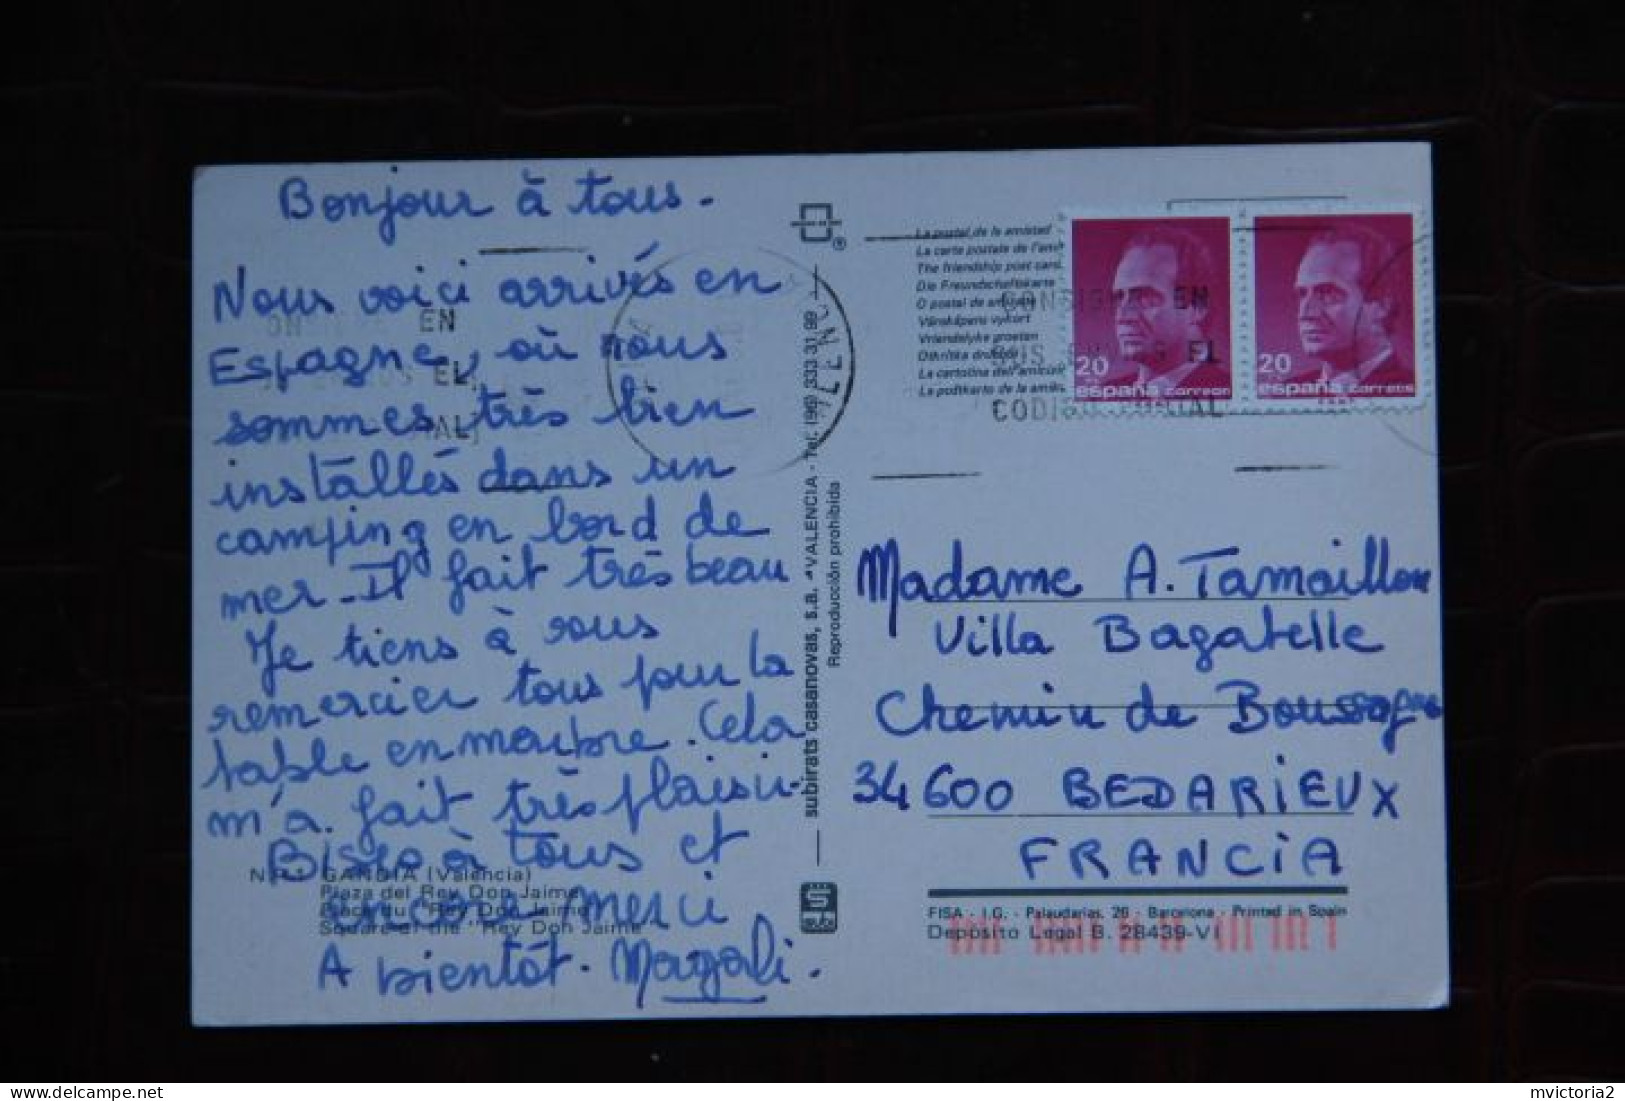 Bonjour à tous.
Nous voici arrivés en
Espagne, où nous
sommes très bien
installés dans un
camping en bord de
mer. Il fait très beau
Je tiens à vous
remercier tous pour la
table en marbre. Cela
m'a fait très plaisir.
Bises à tous et
encore merci
A bientôt. Magali.
N.º 1 GANDIA (Valencia)
Plaza del Rey Don Jaime
Place du "Rey Don Jaime"
Square of the "Rey Don Jaime"
subirats casanovas, s.a. VALENCIA - Tel. (96) 333 31 99
Reproducción prohibida
La postal de la amistad
La carte postale de l'ami
The friendship post card
Die Freundschaftskarte
O postal de amizade
Vänskapens vykort
Vriendelyke groeten
La cartolina dell'amicizia
EN
EL
CONSIGNA EN
EL
CODIGO POSTAL
VALENCIA
20
españa correos
20
españa correos
Madame A. Tamaillon
Villa Bagatelle
Chemin de Boussagues
34600 BEDARIEUX
FRANCIA
FISA - I.G. - Palaudarias, 26 - Barcelona - Printed in Spain
Depósito Legal B. 28439-VI
subi
mvictoria2